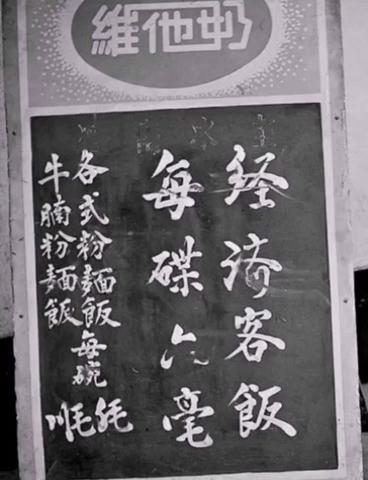 維他奶
経済客飯
每碟六毫
各式粉麵飯每碗
牛腩粉麵飯